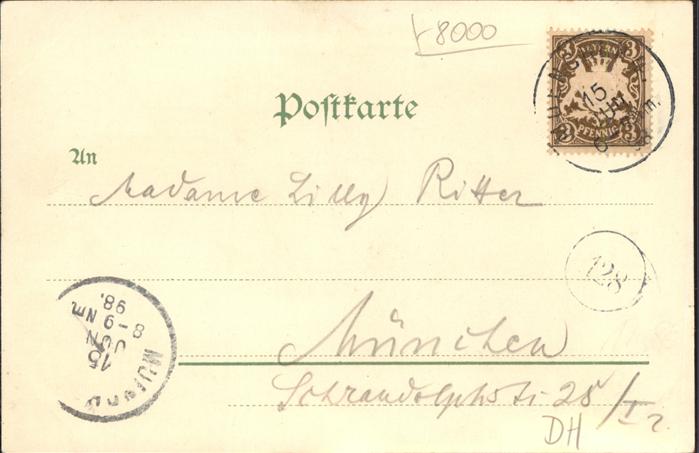 8000
3 BAYERN 3
PFENNIG
15
JUN
Postkarte
An
Madame Lilly Ritter
128
8-9 Nm.
98.
15
JUN
München
Schraudolphstr 25/I r.
DH